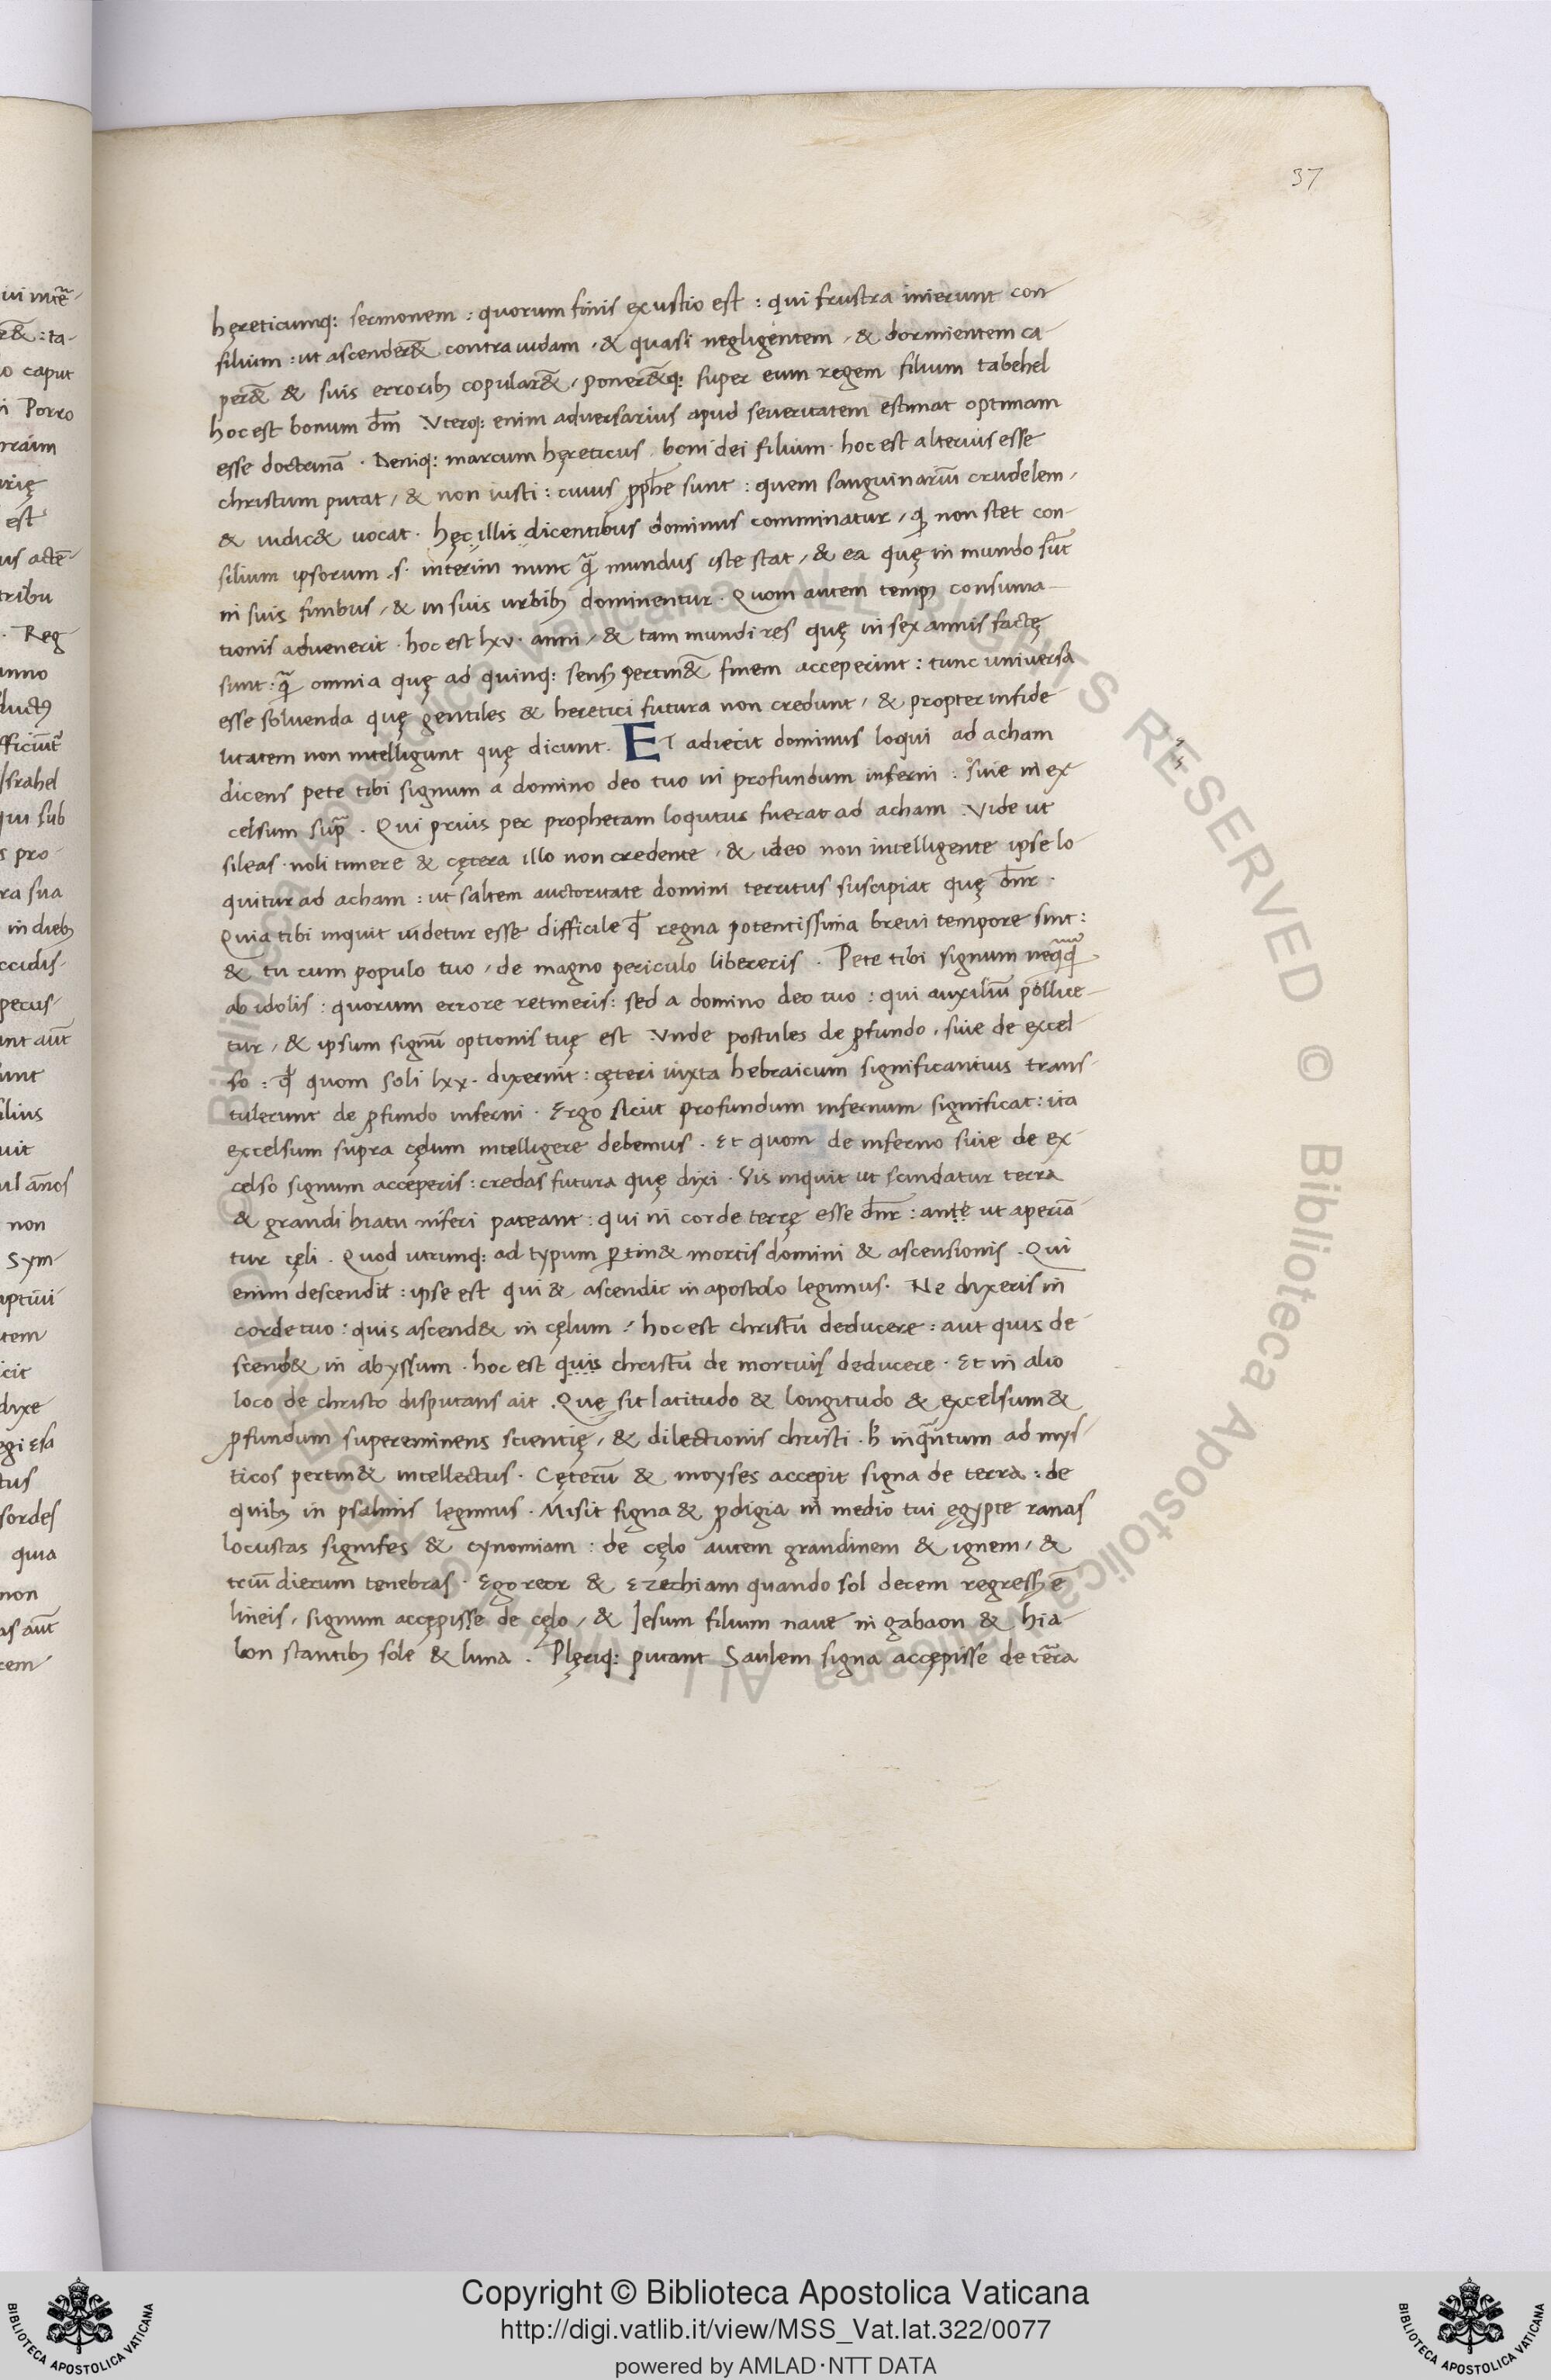 37
hęreticumq: sermonem : quorum finis exustio est : qui frustra inierunt con
silium : ut ascender& contra iudam , & quasi negligentem , & dormientem ca-
per& & suis errorib; copular& , poner&q: super eum regem filium tabehel
hoc est bonum dm̄ . Vterq: enim adversarius apud severitatem estimat optimam
esse doctrinā . Deniq: marcum hęreticus . boni dei filium . hoc est alterius esse
christum putat , & non iusti : cuius ꝓph̄e sunt : quem sanguinariū crudelem ,
& iudic& uocat . hęc illis dicentibus dominus comminatur , ꝙ non stet con-
silium ipsorum . s. interim nunc quādiu mundus iste stat , & ea quę in mundo sūt
in suis finibus , & in suis urbib; dominentur . Quom autem temp; consuma-
tionis advenerit . hoc est lxv . anni , & tam mundi res quę in sex annis factę
sunt : q̄ omnia quę ad quinq: sens; pertin& finem acceperint : tunc universa
esse soluenda quę gentiles & heretici futura non credunt , & propter infide
litatem non intelligunt quę dicunt . ET adiecit dominus loqui ad acham
dicens pete tibi signum a domino deo tuo in profundum inferni : siue in ex
celsum sup̄ . Qui prius per prophetam loqutus fuerat ad acham . Vide ut
sileas . noli timere & cętera illo non credente , & ideo non intelligente ipse lo
quitur ad acham : ut saltem auctoritate domini territus suscipiat quę dn̄r .
Quia tibi inquit uidetur esse difficile ꝙ regna potentissima brevi tempore sint :
& tu cum populo tuo , de magno periculo libereris . Pete tibi signum neq̄q̄
ab idolis : quorum errore retineris : sed a domino deo tuo : qui auxiliū pollice-
tur , & ipsum signū optionis tuę est . Vnde postules de ꝓfundo , siue de excel
so : ꝙ quom soli lxx . dixerint : cęteri iuxta hebraicum significantius trans-
tulerunt de ꝓfundo inferni . Ergo sicut profundum infernum significat : ita
excelsum supra cęlum intelligere debemus . Et quom de inferno siue de ex
celso signum acceperis : credas futura quę dixi . Vis inquit ut scindatur terra
& grandi hiatu inferi pateant : qui in corde terrę esse dn̄r : ante ut aperiā
tur cęli . Quod utrunq: ad typum ꝑtin& mortis domini & ascensionis . Qui
enim descendit : ipse est qui & ascendit in apostolo legimus . Ne dixeris in
corde tuo : quis ascend& in cęlum , hoc est christū deducere : aut quis de
scend& in abyssum . hoc est quis christū de mortuis deducere . Et in alio
loco de christo disputans ait . Quę sit latitudo & longitudo & excelsum &
ꝓfundum supereminens scientię , & dilectionis christi . h̄ inq̄ntum ad mys-
ticos pertin& intellectus . Cęterū & moyses accepit signa de terra : de
quib; in psalmis legimus . Misit signa & ꝓdigia in medio tui egypte ranas
locustas signifes & cynomiam : de cęlo autem grandinem & ignem , &
triū dierum tenebras . Ego reor & Ezechiam quando sol decem regress; ē
lineis , signum accępisse de cęlo , & Iesum filium naue in gabaon & hia-
lon stantib; sole & luna . Plęriq: putant Saulem signa accępisse de tērra
Copyright © Biblioteca Apostolica Vaticana
http://digi.vatlib.it/view/MSS_Vat.lat.322/0077
powered by AMLAD·NTT DATA